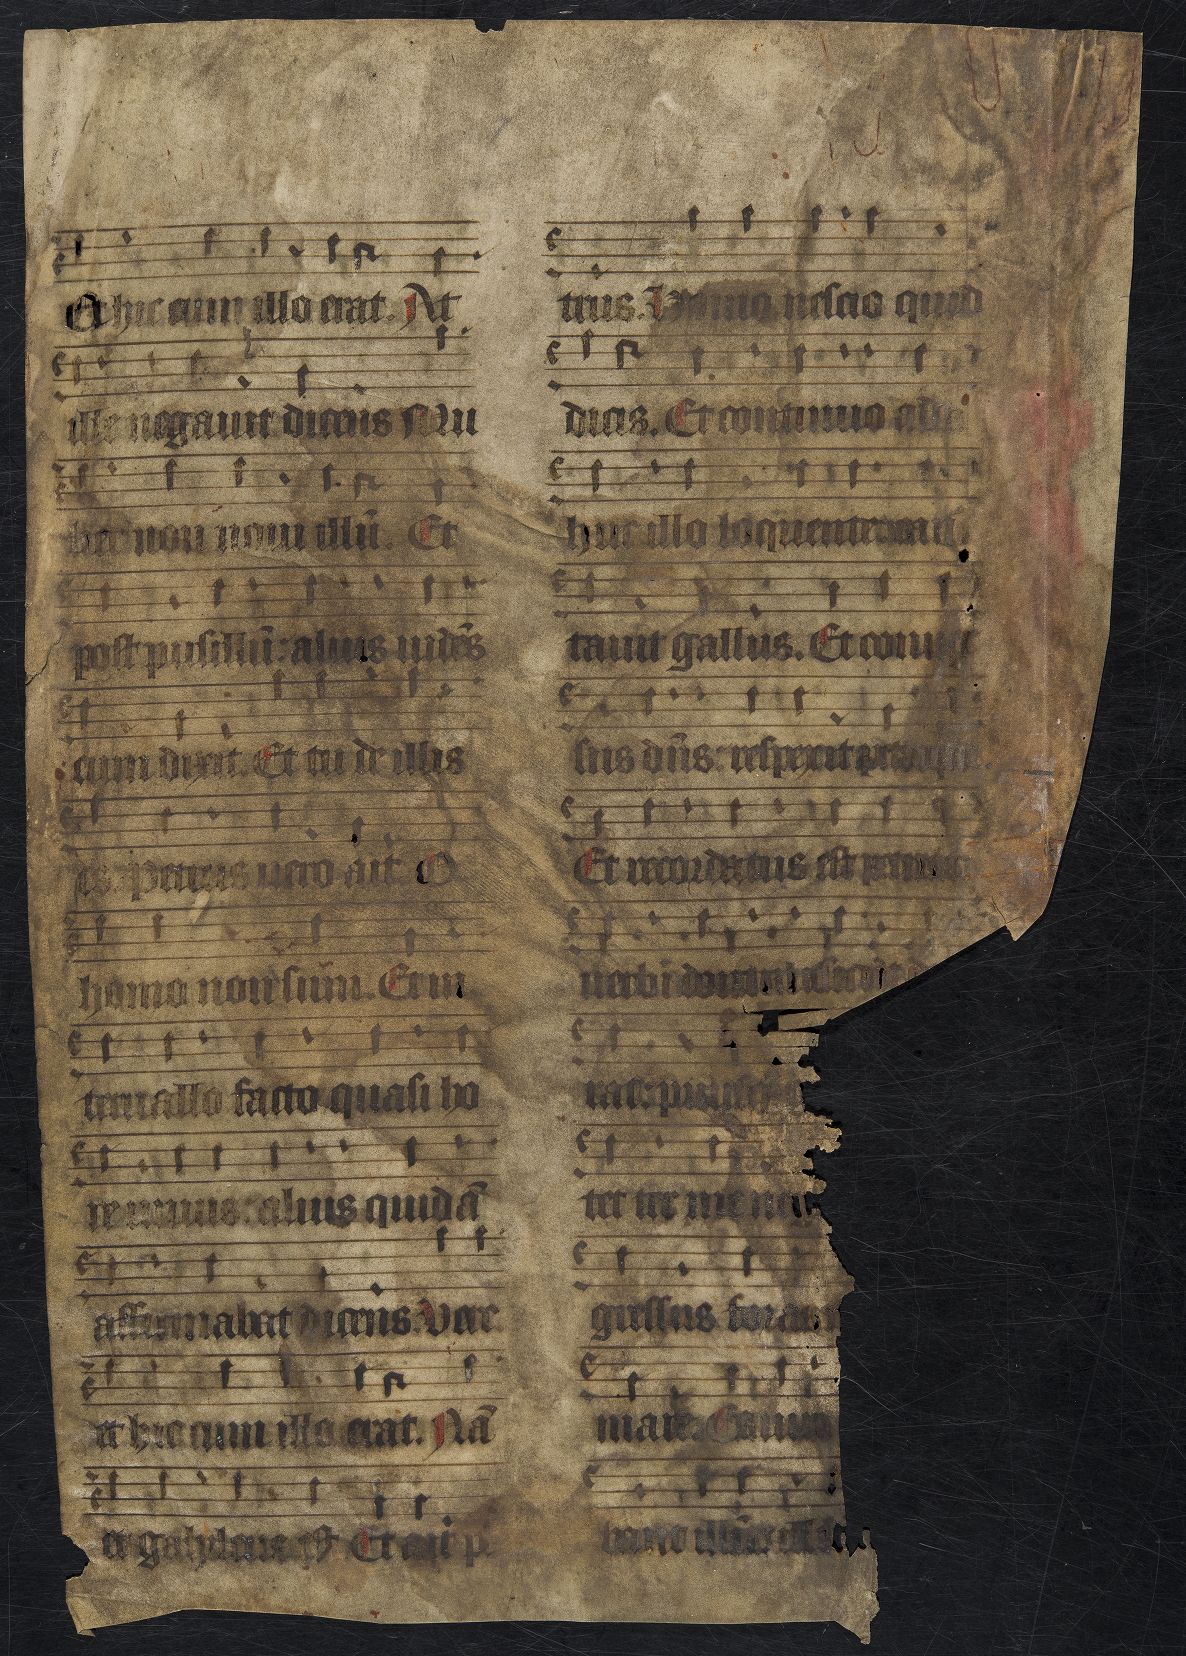 Et hic cum illo erat. At
ille negauit dicens Mu
lier non noui illū. Et
post pusillū: alius uidēs
eum dixit. Et tu de illis
es. Petrus uero ait. O
homo non sum. Et in
teruallo facto quasi ho
re unius: alius quidā
affirmabat dicens. Vere
et hic cum illo erat. Nā
et galyleus est. Et ait p
trus. Homo nescio quid
dicis. Et continuo adhuc
huc illo loquente
tauit gallus. Et conuer
sus dn̄s: respexit petrum
Et recordatus est petrus
uerbi domini sicut
rat: priusq
tet ter me ne
gressus foras
mare. Et uiri
bant illū: illu